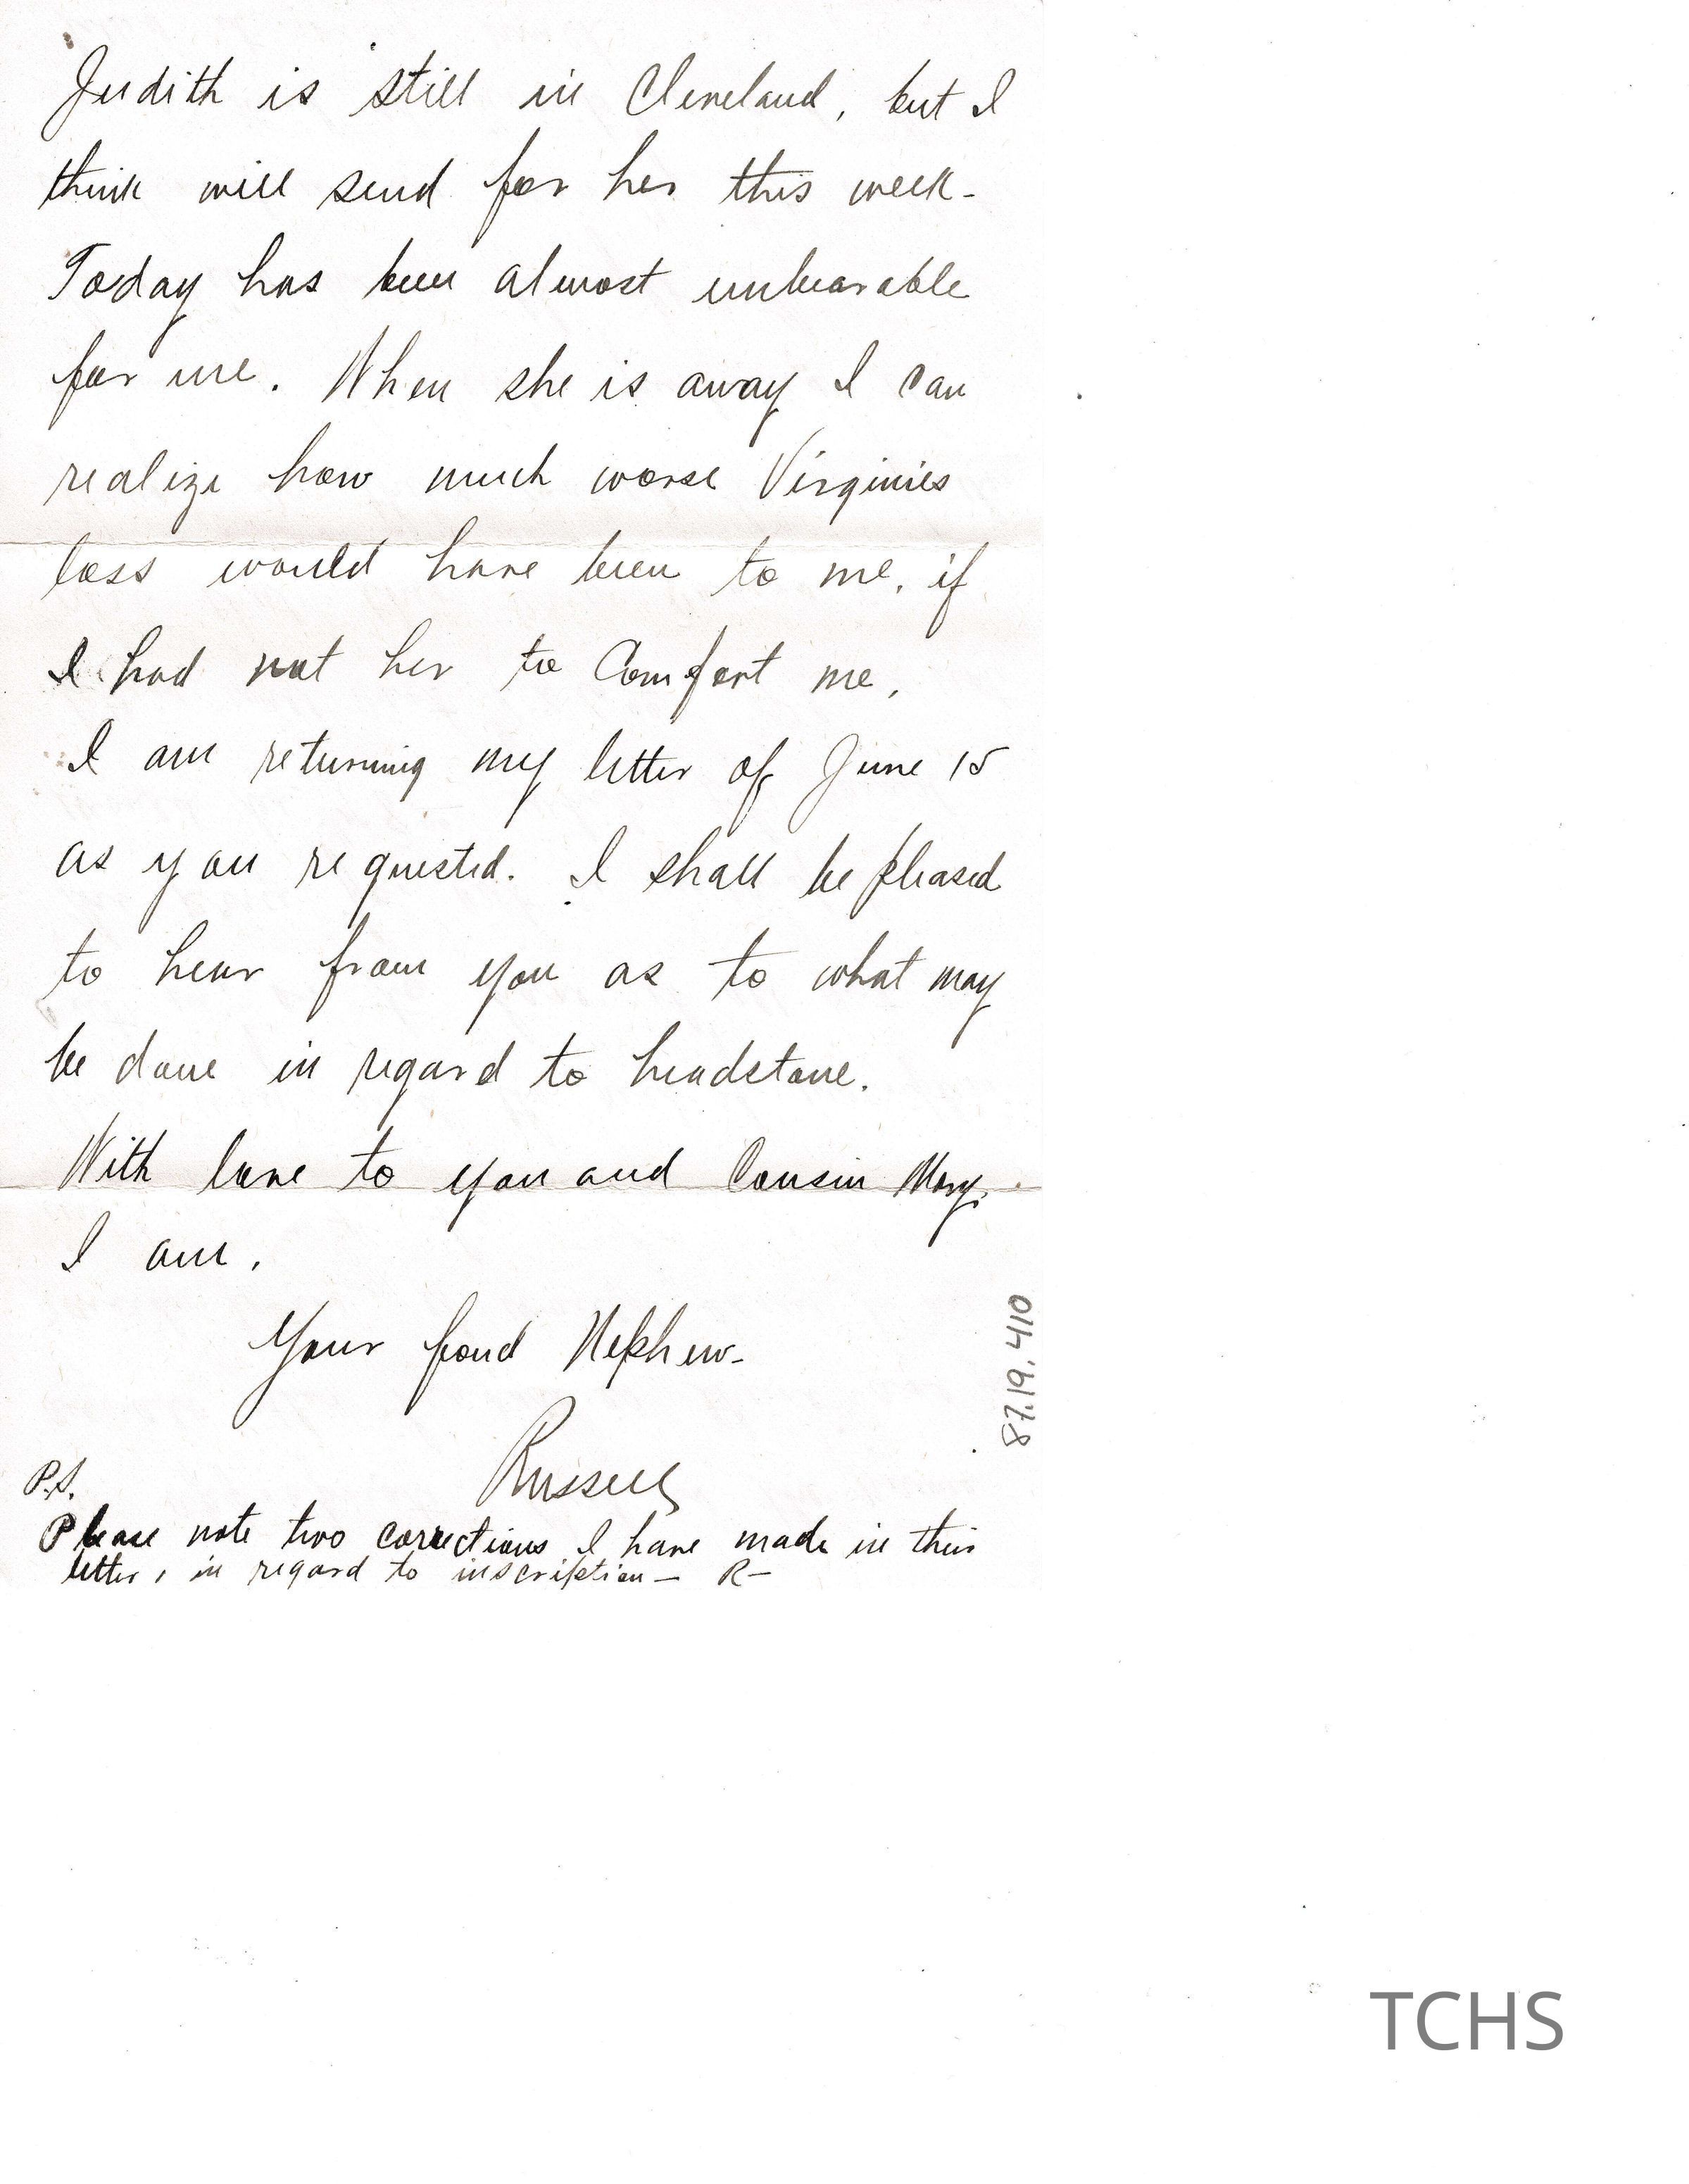 Judith is still in Cleveland, but I
think will send for her this week-
Today has been almost unbearable
for me. When she is away I can
realize how much worse Virginies
loss would have been to me, if
I had not her to Comfort me.
I am returning my letter of June 15
as you requested. I shall be pleased
to hear from you as to what may
be done in regard to headstone.
With love to you and Cousin Mary.
I am.
Your fond Nephew-
Russell
P.S.
Please note two corrections I have made in this
letter, in regard to inscription- R-
87.19.410
TCHS